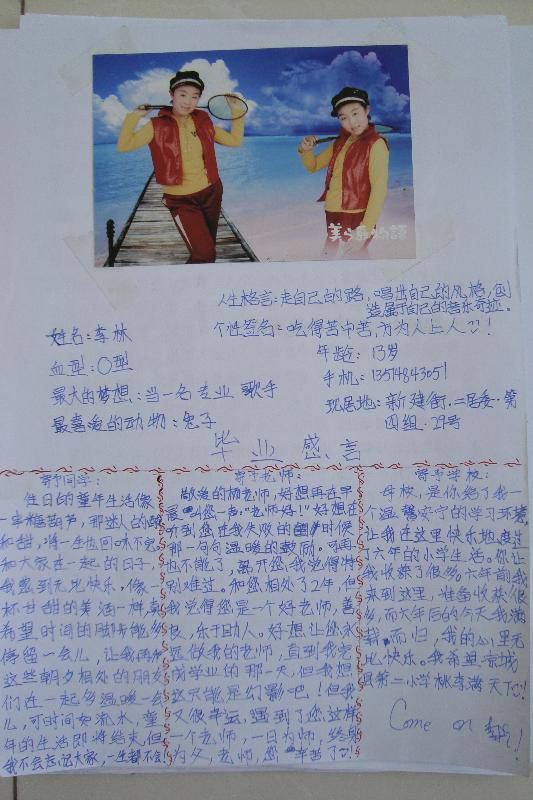 美少女物語
人生格言:走自己的路,唱出自己的风格,创
造属于自己的音乐奇迹.
姓名:李林
个性签名:吃得苦中苦,方为人上人!
年龄:13岁
血型:O型
手机:13514843051
最大的梦想:当一名专业歌手
现居地:新建街.二居委.第
四组.29号
最喜爱的动物:兔子
毕业感言
寄予同学:
往日的童年生活像
一串糖葫芦,那迷人的酸
和甜,将一生也回味不完.
和大家在一起的日子,
我感到无比快乐,像一
杯甘甜的美酒一样,真
希望时间的脚步能多
停留一会儿,让我再和
这些朝夕相处的朋友
们在一起多温暖一会
儿,可时间如流水,童
年的生活即将结束,但
我不会忘记大家,一生都不会!
寄予老师:
敬爱的老师,好想再在早
晨叫您一声:"老师好!"好想在
听到您在我失败的时候
那一句句温暖的鼓励.可再
也不能了,离开您我觉得特
别难过。和您相处了2年,但
我觉得您是一个好老师,善
良,乐于助人。好想让您永
远做我的老师,直到我完
成学业的那一天,但我想
这只能是幻影吧!但我
又很幸运,遇到了您这样
一个老师,一日为师,终身
为父,老师,您辛苦了!
寄予学校:
母校,是你给了我一
个温馨安宁的学习环境,
让我在这里快乐地度过
了六年的小学生活。你让
我收获了很多。六年前我
来到这里,准备收获很
多,而六年后的今天我满
载而归,我的心里无
比快乐。我希望
县第二小学桃李满天下!
Come on